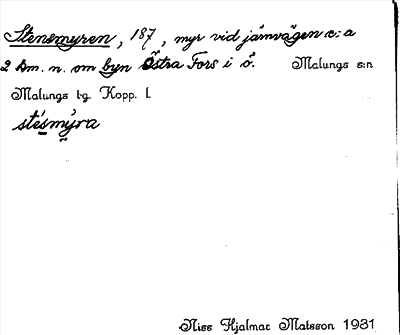 Stensmyren, 187, myr vid järnvägen c:a
2 km. n. om byn Östra Fors i ö. Malungs s:n
Malungs tg. Kopp. l.
stésmýra
Niss Hjalmar Matsson 1931